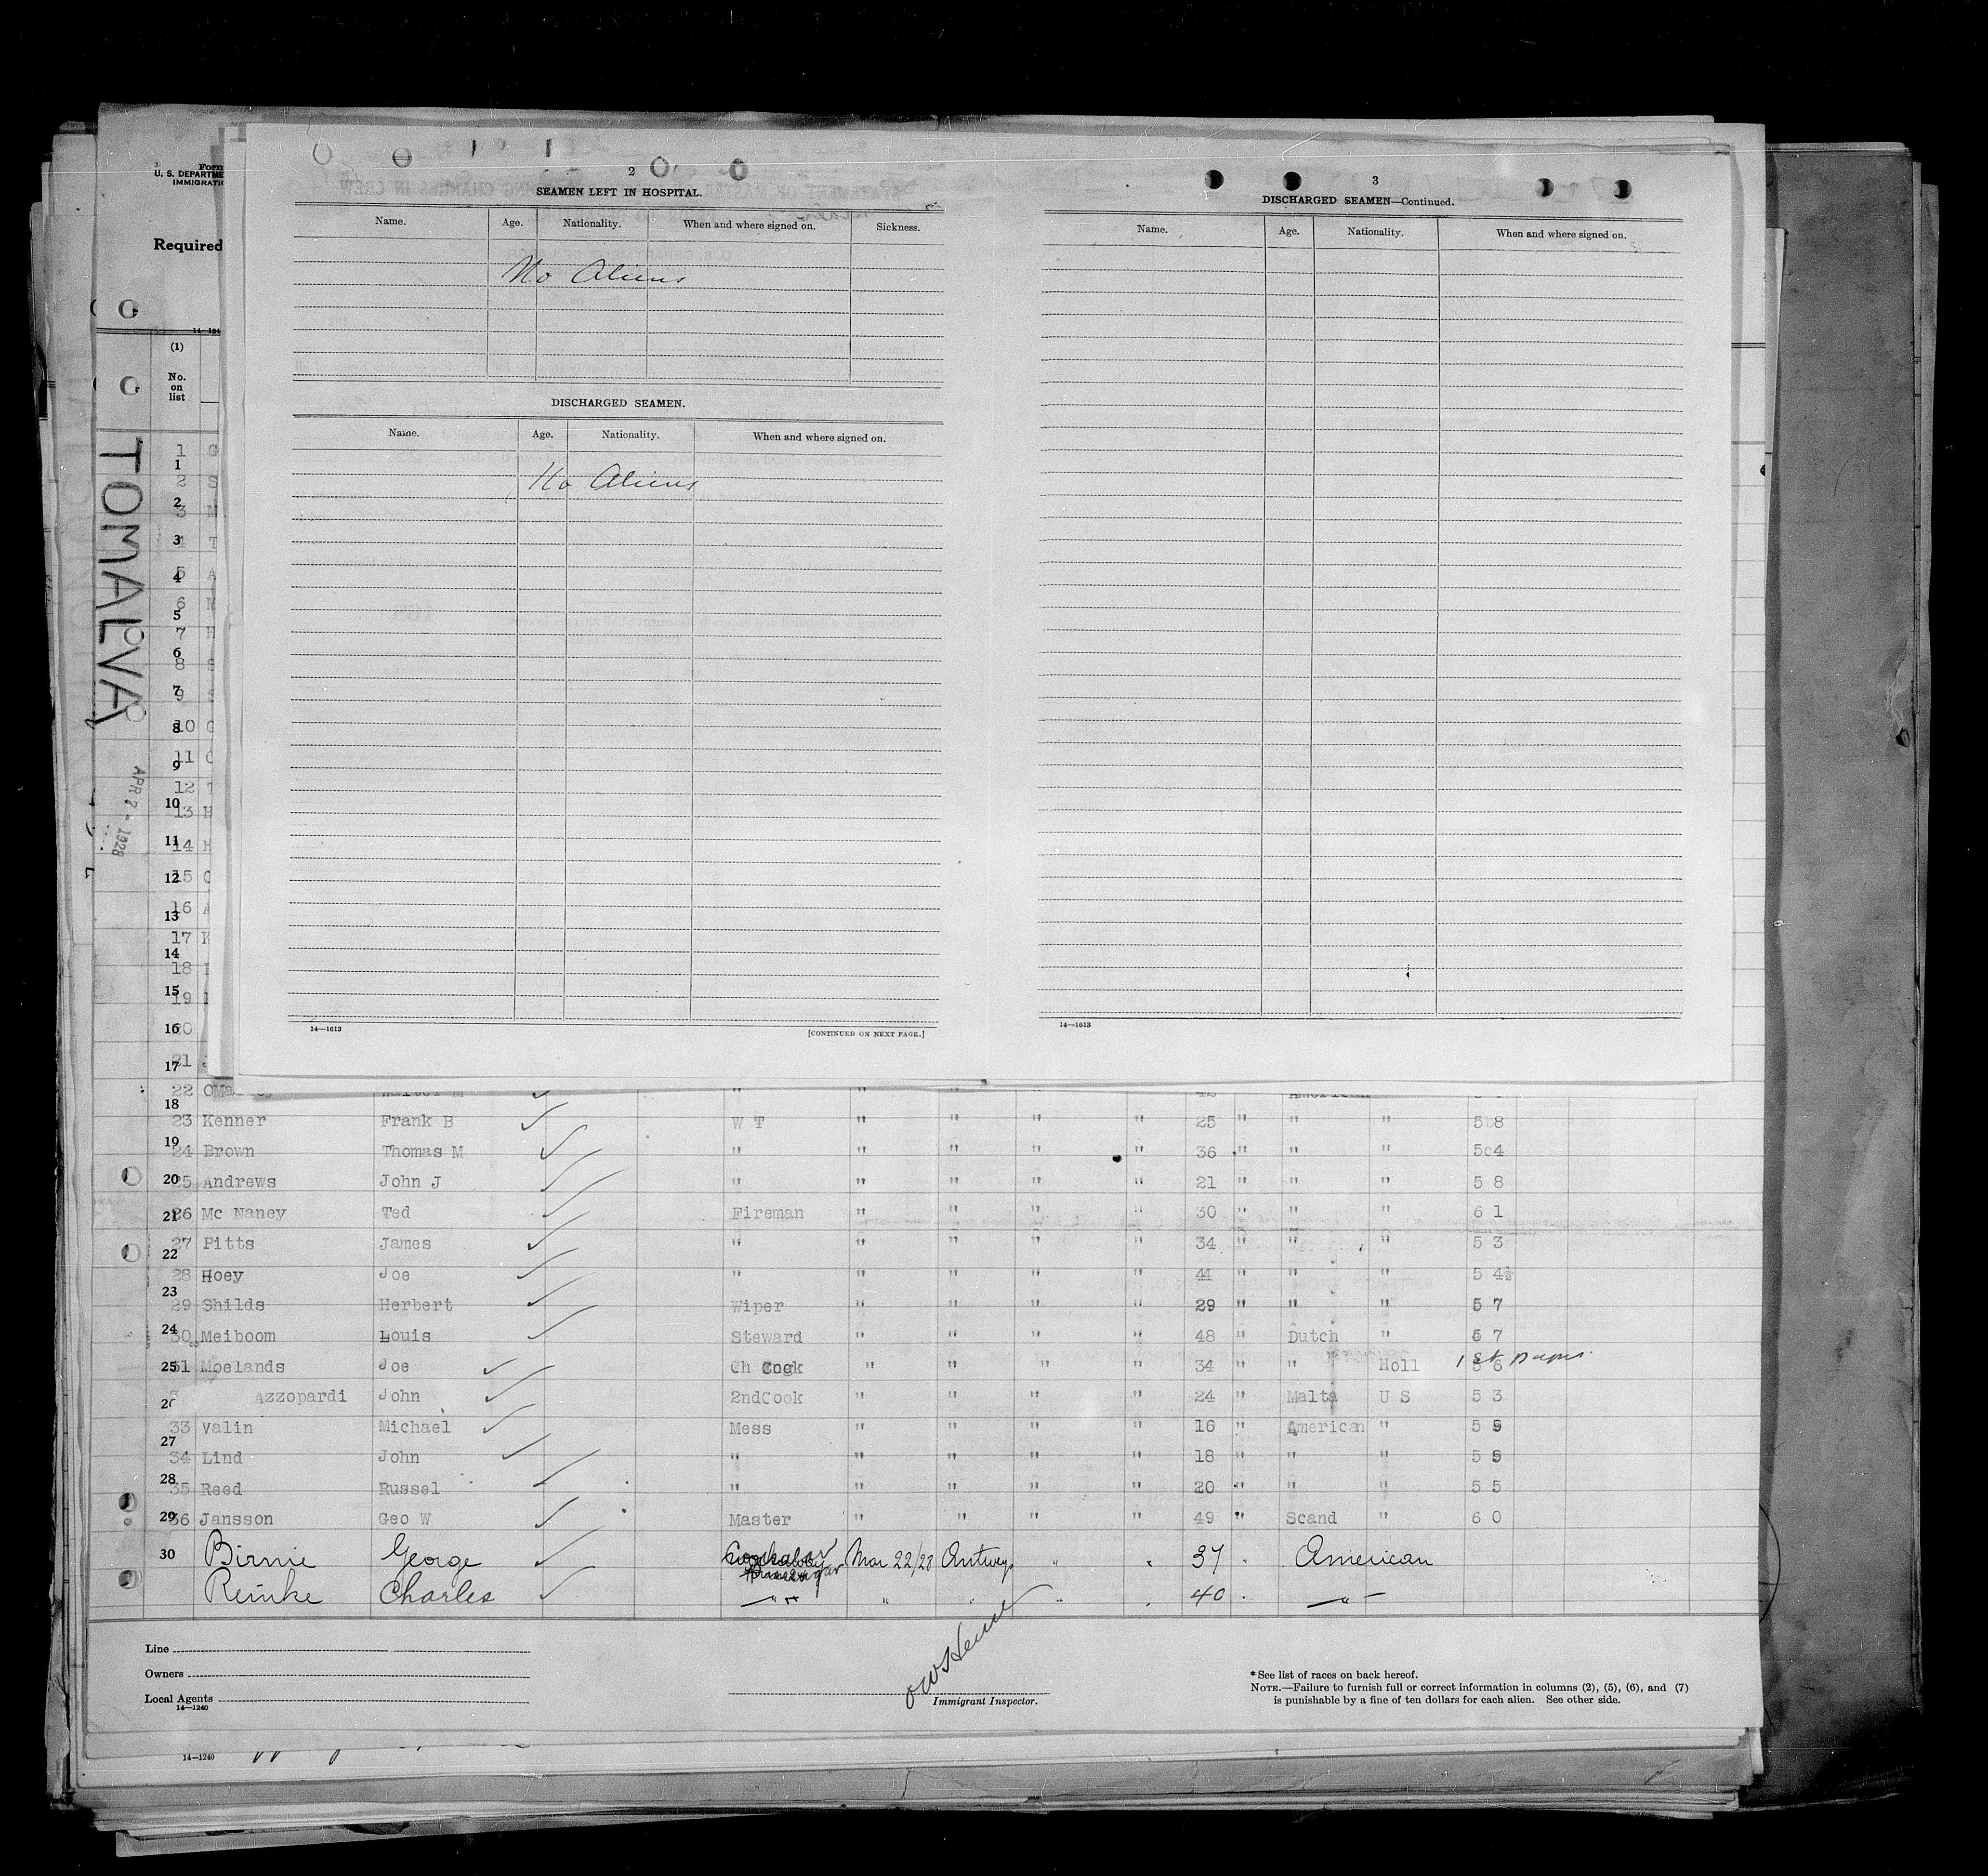 Form
U. S. DEPARTME
IMMIGRATIO
Required
14—124
(1)
No.
on
list
TOMALVA
APR 7 - 1928
2
SEAMEN LEFT IN HOSPITAL.
Name. Age. Nationality. When and where signed on. Sickness.
No Aliens
DISCHARGED SEAMEN.
Name. Age. Nationality. When and where signed on.
No Aliens
14—1613 [CONTINUED ON NEXT PAGE.]
3
DISCHARGED SEAMEN—Continued.
Name. Age. Nationality. When and where signed on.
14—1613
1 G
1
2 S
2
3 M
3
4 T
5 A
4
6 M
5
7 H
6
8 S
7
9 S
8
10 G
11 C
9
12 T
10
13 H
11
14 H
12
15 C
16 A
13
17 K
14
18
15
19
16
20
17
21 J
22 Walter M " " " " " American
18
23 Kenner Frank B W T " " " " 25 " " " 5 8
19
24 Brown Thomas M " " " " " 36 " " " 5 4
20
25 Andrews John J " " " " " 21 " " " 5 8
21
26 Mc Naney Ted Fireman " " " " 30 " " " 6 1
22
27 Pitts James " " " " " 34 " " " 5 3
28 Hoey Joe " " " " " 44 " " " 5 4½
23
29 Shilds Herbert Wiper " " " " 29 " " " 5 7
24
30 Meiboom Louis Steward " " " " 48 " Dutch " 7
25
31 Moelands Joe Ch Cook " " " " 34 " " Holl 5 6 1st papers
26
3 Azzopardi John 2ndCook " " " " 24 " Malta U S 5 3
33 Valin Michael Mess " " " " 16 " American " 5 9
27
34 Lind John " " " " " 18 " " " 5
28
35 Reed Russel " " " " " 20 " " " 5 5
29
36 Jansson Geo W Master " " " " 49 " Scand " 6 0
30 Birnie George Mar 22/28 Antwerp " " 37 " American
Reinke Charles " " " " " 40 " "
Line
Owners
Local Agents
14—1240
Immigrant Inspector.
* See list of races on back hereof.
NOTE.—Failure to furnish full or correct information in columns (2), (5), (6), and (7)
is punishable by a fine of ten dollars for each alien. See other side.
14—1240